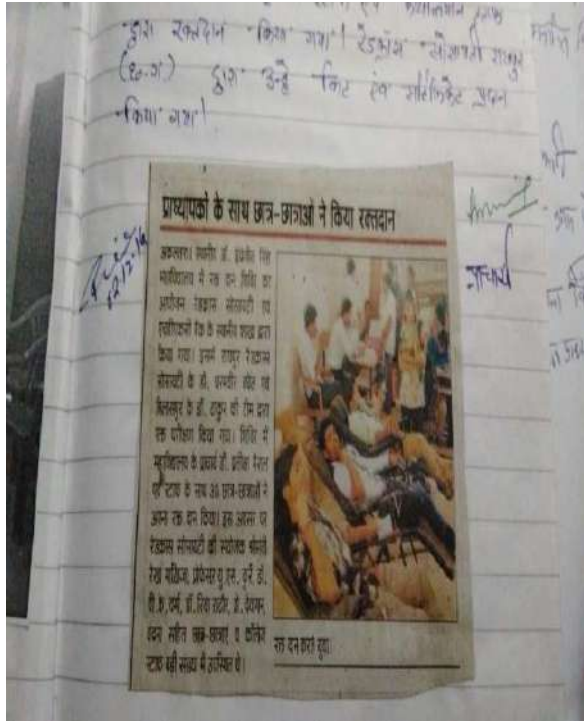 द्वारा रक्तदान किया गया। रेडक्रास सोसायटी रायपुर
(छ.ग.) द्वारा उन्हे किट एंव सर्टिफिकेट प्रदान
किया गया।
प्राध्यापकों के साथ छात्र-छात्राओं ने किया रक्तदान
अकलतरा। स्थानीय डॉ. इन्द्रजीत सिंह
महाविद्यालय में रक्त दान शिविर का
आयोजन रेडक्रास सोसायटी एवं
एचडीएफसी बैंक के स्थानीय शाखा द्वारा
किया गया। इसमें रायपुर रेडक्रास
सोसायटी के डॉ. धरमवीर एवं
बिलासपुर के डॉ. ठाकुर की टीम द्वारा
रक्त परीक्षण किया गया। शिविर में
महाविद्यालय के प्राचार्य डॉ. प्रतीक्षा
एवं स्टाफ के साथ छात्र-छात्राओं ने
अपना रक्त दान किया। इस अवसर पर
रेडक्रास सोसायटी की संयोजक श्रीमति
रेखा प्रोफेसर यू.एस. दुबे, डॉ.
पी.के. वर्मा, डॉ. रिचा राठौर, प्रो. देवघर,
सहित छात्र-छात्राएं व कॉलेज
स्टाफ बड़ी संख्या में उपस्थित थे।
रक्त दान करते युवा।
प्राचार्य